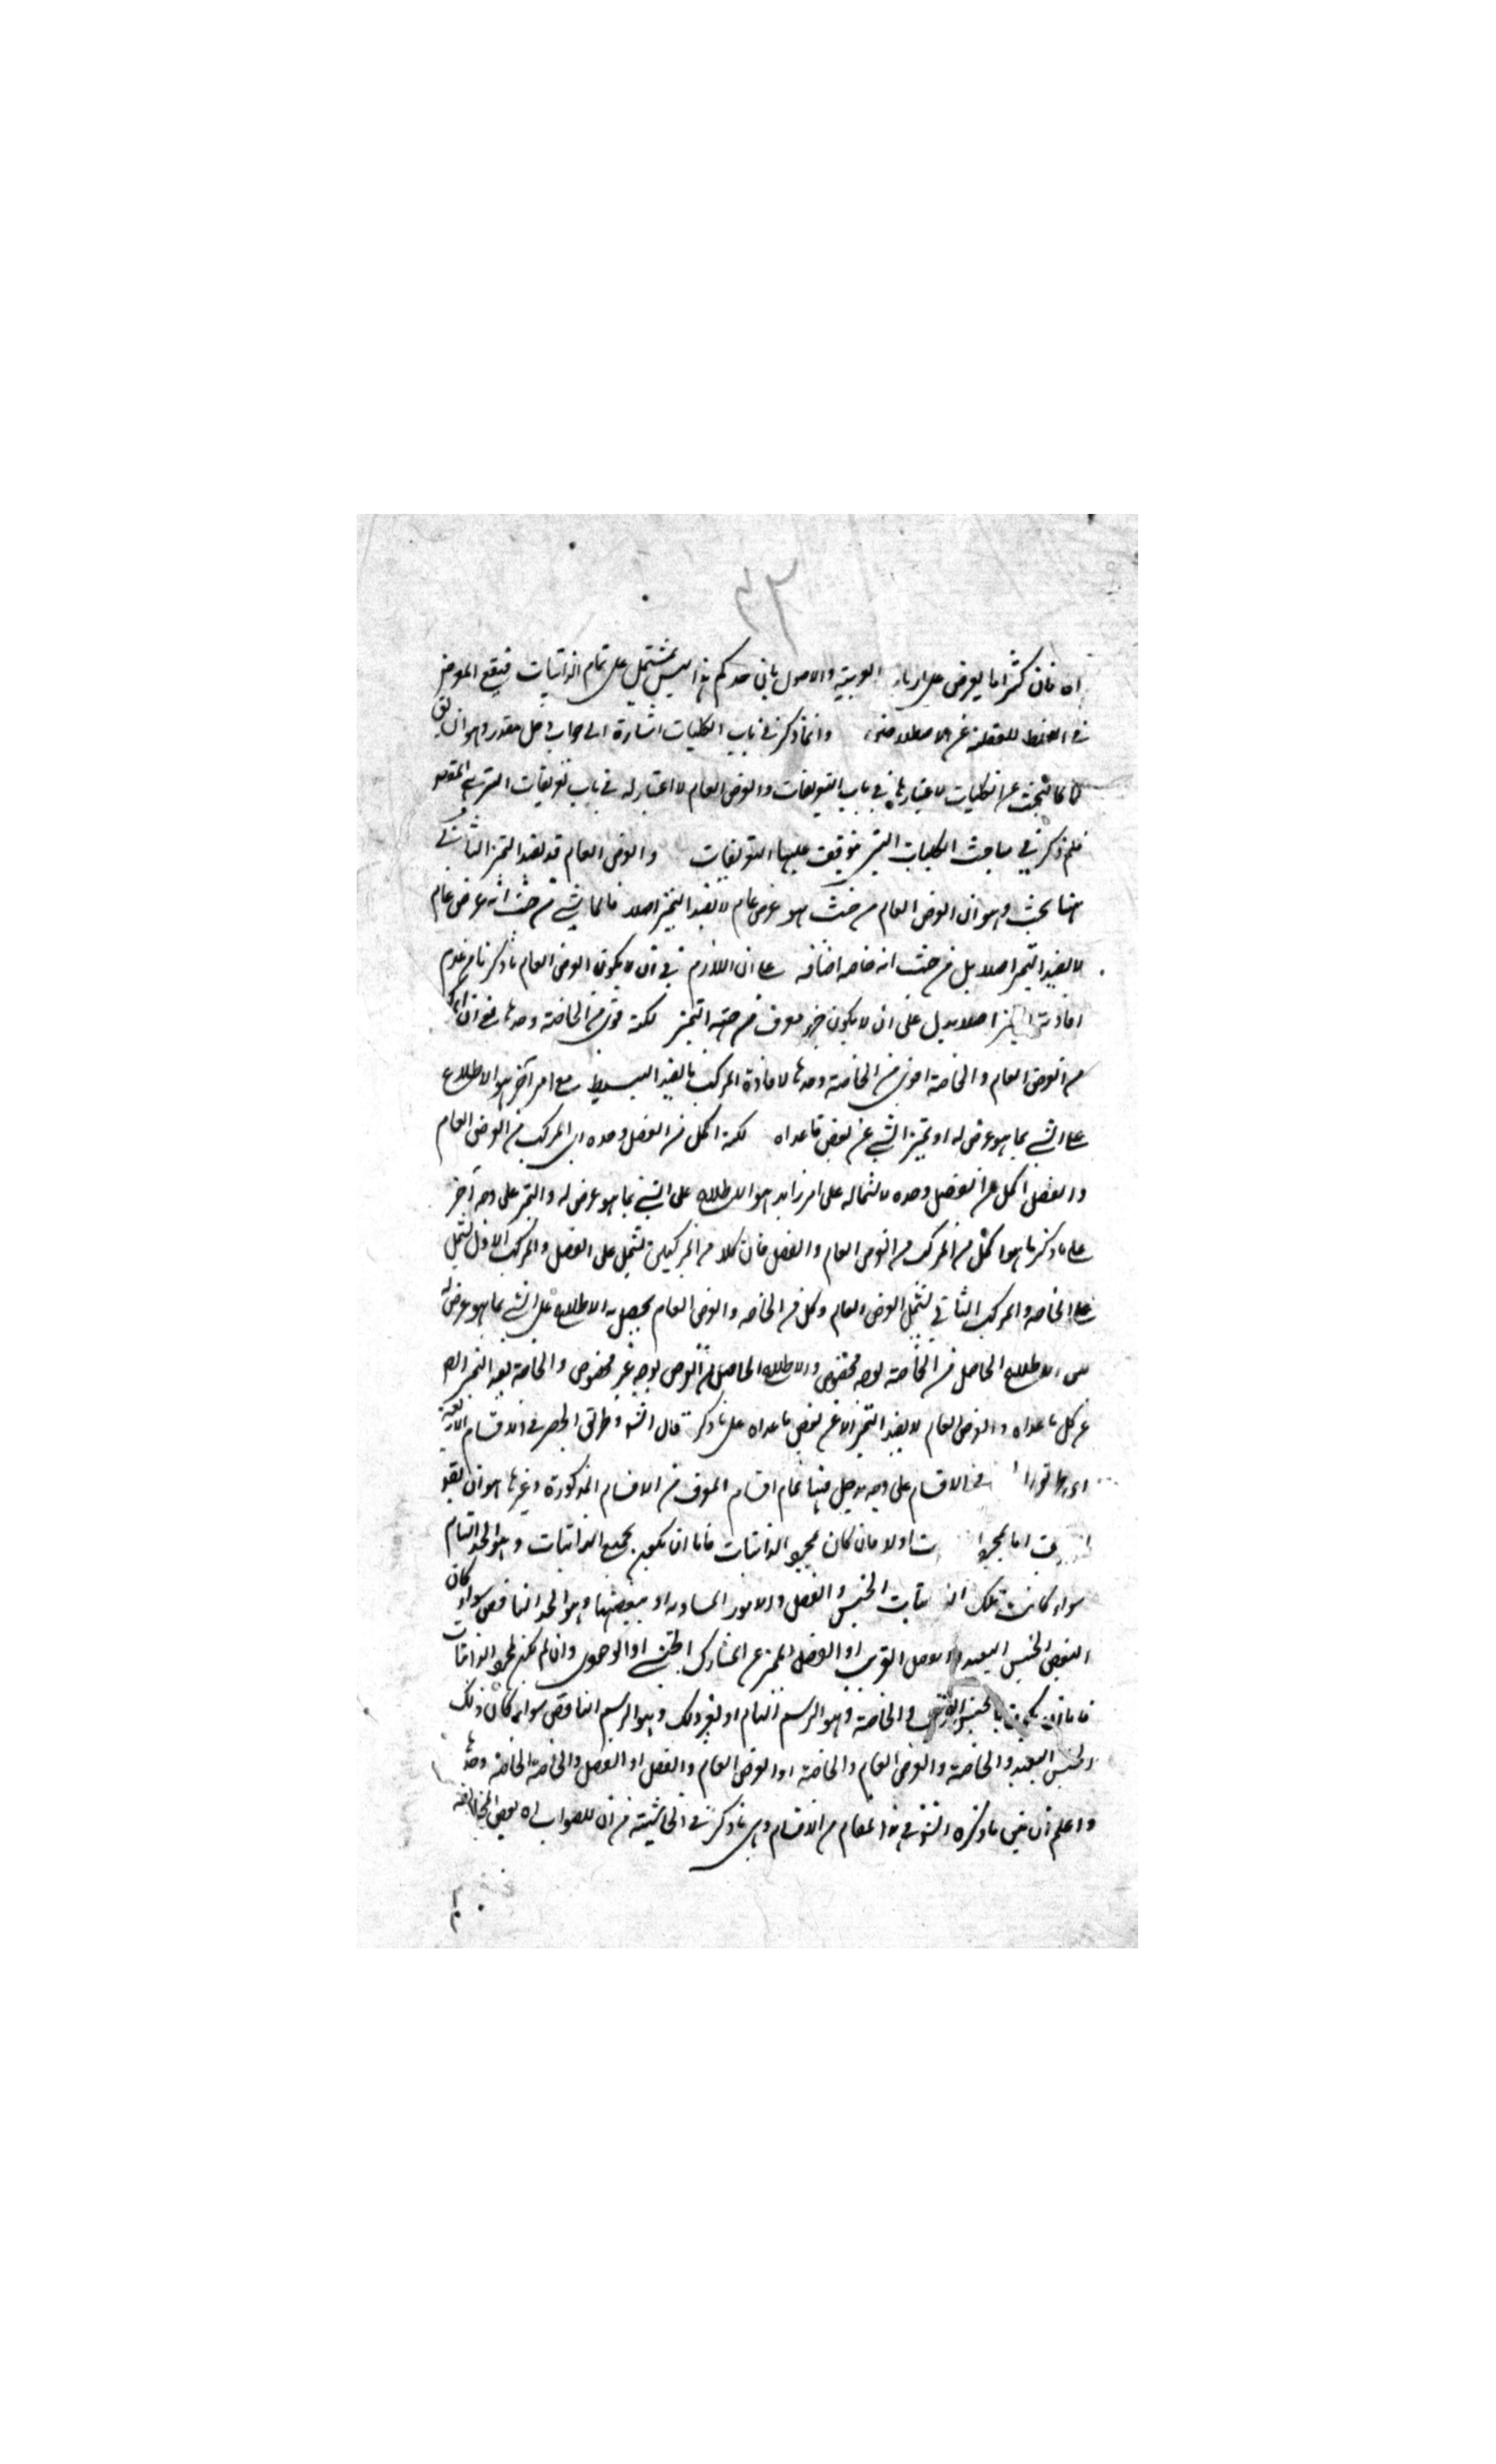 ٤٣
اه فان كثيرا ما يعرض على ارباب العربية والاصول بان حدكم هذا ليس بمشتمل على تمام الذاتيات فيقع المعرض
في الغلط للغفلة عن الاصطلاح وانما ذكر في باب الكليات اشارة الى جواب دخل مقدر وهو ان يق
كما نبحث عن الكليات لاعتبارها في باب التعريفات والعرض العام لا اعتبار له في باب تعريفات
فلم ذكر في مباحث الكليات التي توقف عليها التعريفات والعرض العام قد يفيد التميز
ههنا بحث وهو ان العرض العام من حيث هو عرض عام لا يفيد التميز اصلا فالماشي من حيث انه عرض عام
لا يفيد التميز اصلا بل من حيث انه خاصه اضافيه على ان اللازم في ان لا يكون العرض العام ما ذكرنا من عدم
افادته التميز اصلا يدل على ان لا يكون جزء معرف من جهة التميز لكنه قوى من الخاصة وحدها
من العرض العام والخاصة اقوى من الخاصة وحدها لافادة المركب ما يفيد البسيط مع امر آخر هو الاطلاع
على الشي بما هو عرض له او تميز الشي عن بعض ما عداه لكنه اكمل من الفصل وحده اى المركب من العرض العام
والفصل اكمل من الفصل وحده لاشتماله على امر زايد هو الاطلاع على الشي بما هو عرض له والتميز على وجه آخر
على ما ذكر ما هو اكمل من المركب من العرض العام والفصل فان كلا من المركبين يشتمل على الفصل والمركب الاول يشتمل
على الخاصه والمركب الثاني يشتمل العرض العام وكل من الخاصه والعرض العام يحصل به الاطلاع على الشي بما هو عرض له
لكن الاطلاع الحاصل من الخاصة بوجه مخصوص والاطلاع الحاصل من العرض بوجه غير مخصوص والخاصة يفيد التميز
عن كل ما عداه والعرض العام لا يفيد التميز الا عن بعض ما عداه على ما ذكر قال الش وطريق الحصر في الاقسام الاربعة
في الاقسام على وجه يدخل فيها تمام اقسام المعرف من الاقسام المذكورة وغيرها هو ان يقو
اما بمجرد اولا فان كان بمجرد الذاتيات فاما ان يكون بجميع الذاتيات وهو الحد التام
سواء كانت تلك الجنس والفصل والامور المساويه او ببعضها وهو الحد الناقص سواء كان
البعض الجنس البعيد والفصل القريب او الفصل المميز عن المشارك الجنسي او الوجودى وان لم يكن بمجرد الذاتيات
فاما ان يكون بالجنس القريب والخاصة وهو الرسم التام او بغير ذلك وهو الرسم الناقص سواء كان ذلك
الجنس البعيد والخاصة والعرض العام والخاصة او العرض العام والفصل او الفصل والخاصة الخاصة وحدها
واعلم ان بين ما ذكره الش في هذا المقام من الاقسام وبين ما ذكر في الحاشية من ان الصواب اه